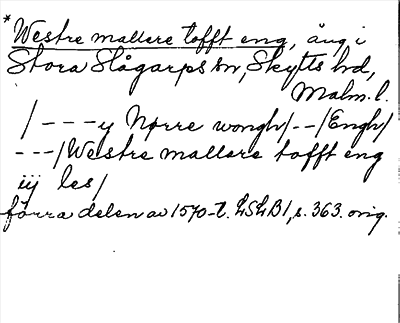 * Westre mallere tofft eng, äng i
Stora Slågarps sn, Skytts hd,
Malm. l.
/---y Nørre wongh/--/Engh/
---/Westre mallere tofft eng
iij les/
förra delen av 1570-t. LSLB1, s. 363. orig.